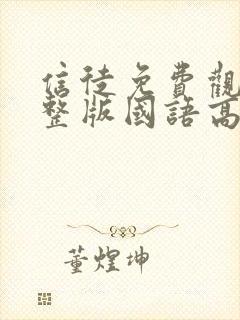 信徒免費觀
整版國語高
董煌坤